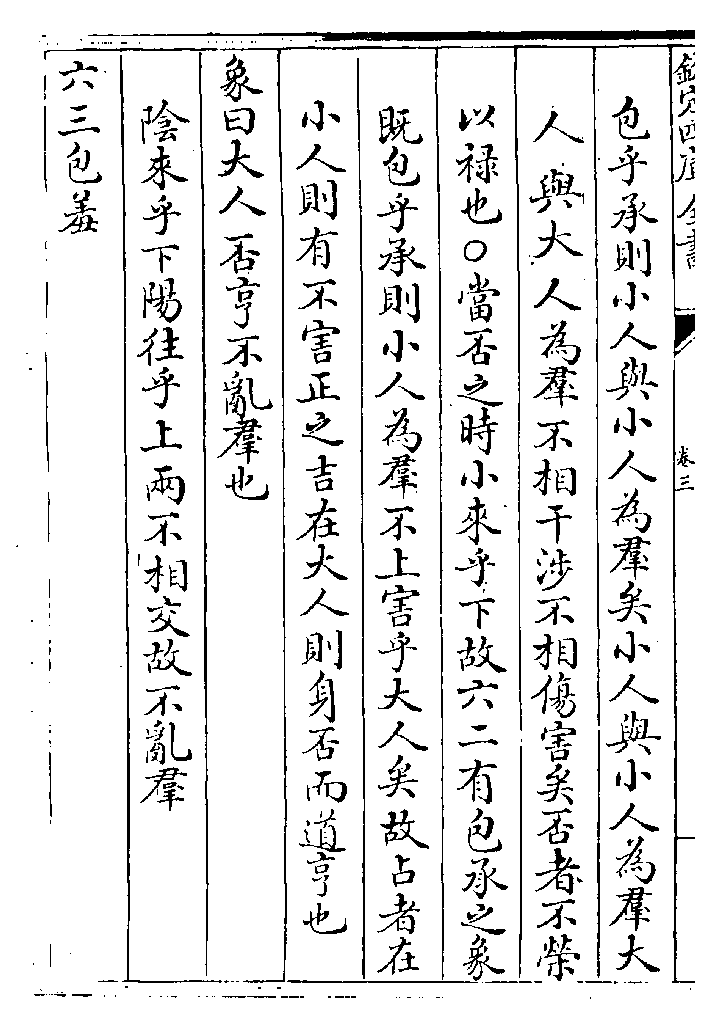 欽定四庫全書
卷三
包乎承則小人與小人為羣矣小人與小人為羣大
人與大人為羣不相干涉不相傷害矣否者不榮
以禄也○當否之時小來乎下故六二有包承之象
既包乎承則小人為羣不上害乎大人矣故占者在
小人則有不害正之吉在大人則身否而道亨也
象曰大人否亨不亂羣也
陰來乎下陽往乎上兩不相交故不亂羣
六三包羞